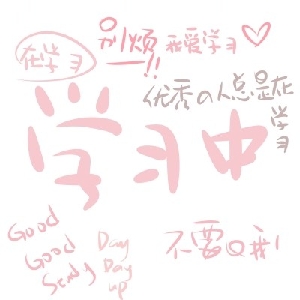 在学习
别烦!!
我爱学习
优秀の人总是在学习
学习中
Good
Good
Study
Day
Day
up
不要Q我!